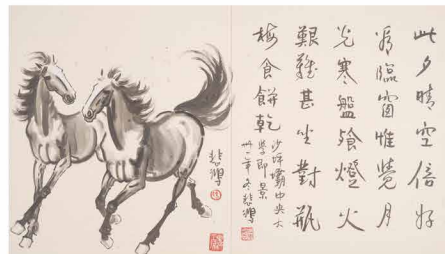 此夕晴空信好
看臨窗惟覺月
光寒盤飧燈火
艱難甚坐對瓶
梅食餅乾
沙坪壩中央大
學即景
卅一年冬悲鴻
悲鴻